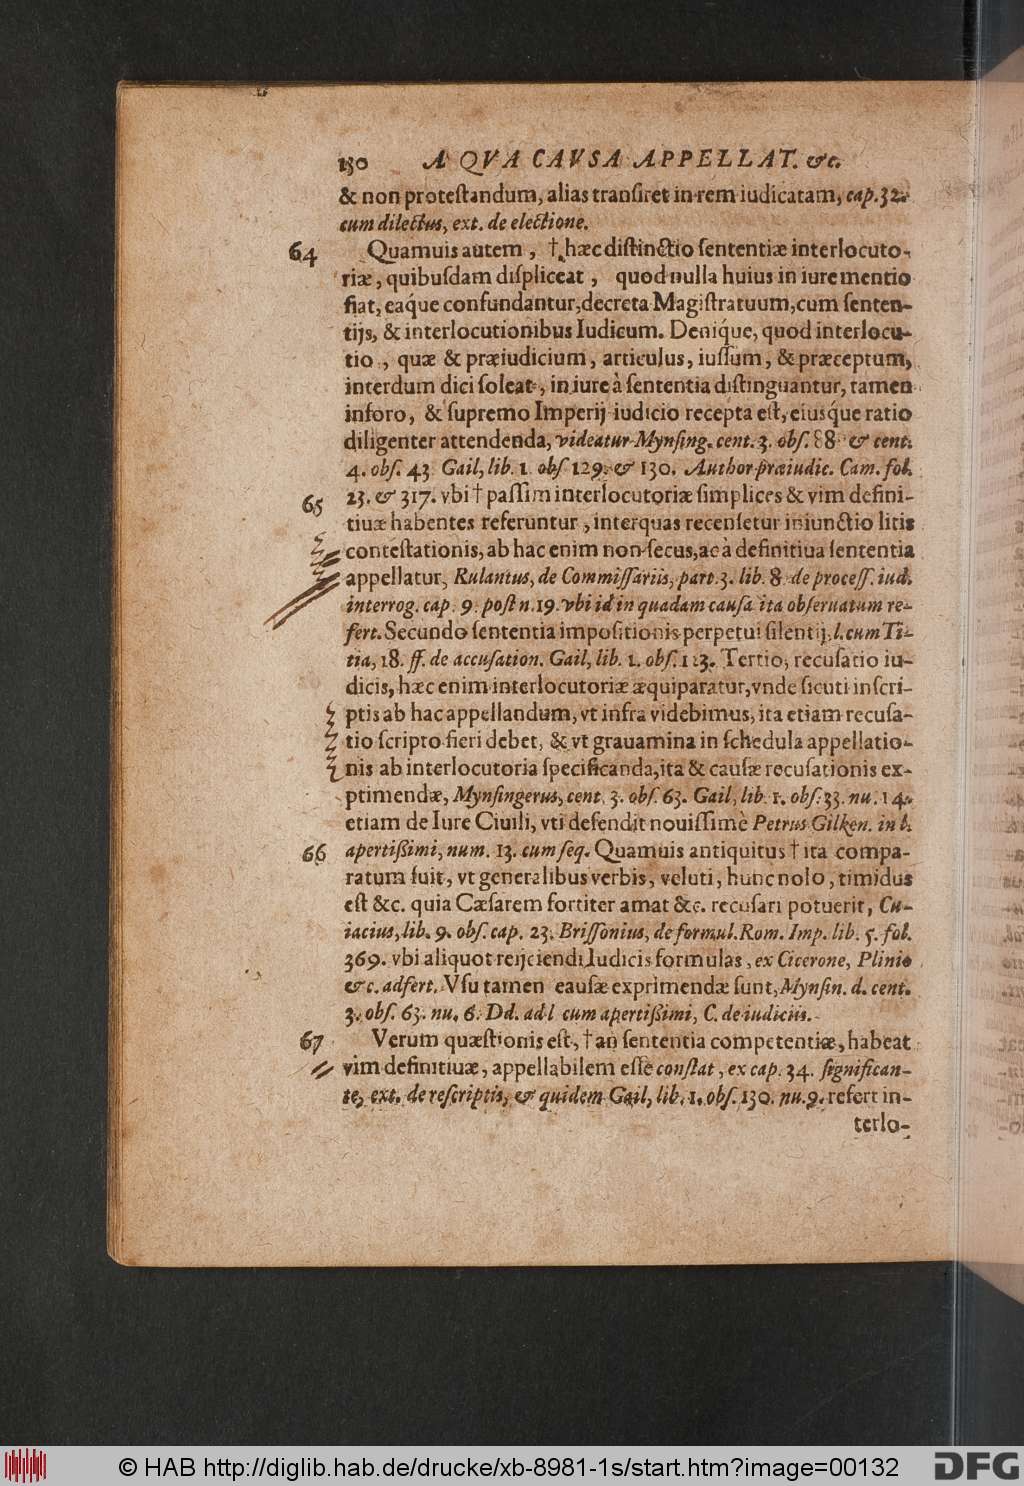 130 A QVA CAVSA APPELLAT. &c.
& non proteſtandum, alias tranſiret in rem iudicatam, cap. 32.
cum dilectus, ext. de electione.
64 Quamuis autem, † hæc diſtinctio ſententiæ interlocuto-
riæ, quibuſdam diſpliceat, quod nulla huius in iure mentio
fiat, eáque confundantur, decreta Magiſtratuum, cum ſenten-
tijs, & interlocutionibus Iudicum. Deniq́ue, quod interlocu-
tio, quæ & præiudicium, articulus, iuſſum, & præceptum,
interdum dici ſoleat, in iure à ſententia diſtinguantur, tamen
in foro, & ſupremo Imperij iudicio recepta eſt, eiusq́ue ratio
diligenter attendenda, videatur Mynſing. cent. 3. obſ. 88 & cent.
4. obſ. 43 Gail, lib. 1 obſ 129. & 130. Author præiudic. Cam. fol.
65 23. & 317. vbi † paſſim interlocutoriæ ſimplices & vim defini-
tiuæ habentes referuntur, inter quas recenſetur iniunctio litis
conteſtationis, ab hac enim non ſecus, ac à definitiua ſententia
appellatur, Rulantus, de Commiſſariis, part. 3. lib. 8. de proceſſ. iud.
interrog. cap. 9. poſt n. 19. vbi id in quadam cauſa ita obſeruatum re-
fert. Secundo ſententia impoſitionis perpetui ſilentij, l. cum Ti-
tia, 18. ff. de accuſation. Gail, lib. 1. obſ. 113. Tertio, recuſatio iu-
dicis, hæc enim interlocutoriæ æquiparatur, vnde ſicuti in ſcri-
ptis ab hac appellandum, vt infra videbimus, ita etiam recuſa-
tio ſcripto fieri debet, & vt grauamina in ſchedula appellatio-
nis ab interlocutoria ſpecificanda, ita & cauſæ recuſationis ex-
ptimendæ, Mynſingerus, cent. 3. obſ. 63. Gail, lib. 1. obſ. 33. nu. 14.
etiam de Iure Ciuili, vti defendit nouiſſimè Petrus Gilken. in l.
66 apertißimi, num. 13. cum ſeq. Quamuis antiquitus † ita compa-
ratum fuit, vt generalibus verbis, veluti, hunc nolo, timidus
eſt &c. quia Cæſarem fortiter amat &c. recuſari potuerit, Cu-
iacius, lib. 9. obſ. cap. 23. Briſſonius, de formul. Rom. Imp. lib. 5. fol.
369. vbi aliquot reijciendi Iudicis formulas, ex Cicerone, Plinio
&c. adfert. Vſu tamen cauſæ exprimendæ ſunt, Mynſin. d. cent.
3. obſ. 63. nu. 6. Dd. ad l cum apertißimi, C. de iudiciis.
67 Verum quæſtionis eſt, † an ſententia competentiæ, habeat
vim definitiuæ, appellabilem eſſe conſtat, ex cap. 34. ſignifican-
te, ext. de reſcriptis, & quidem Gail, lib. 1. obſ. 130. nu. 9. refert in-
terlo-
© HAB http://diglib.hab.de/drucke/xb-8981-1s/start.htm?image=00132
DFG